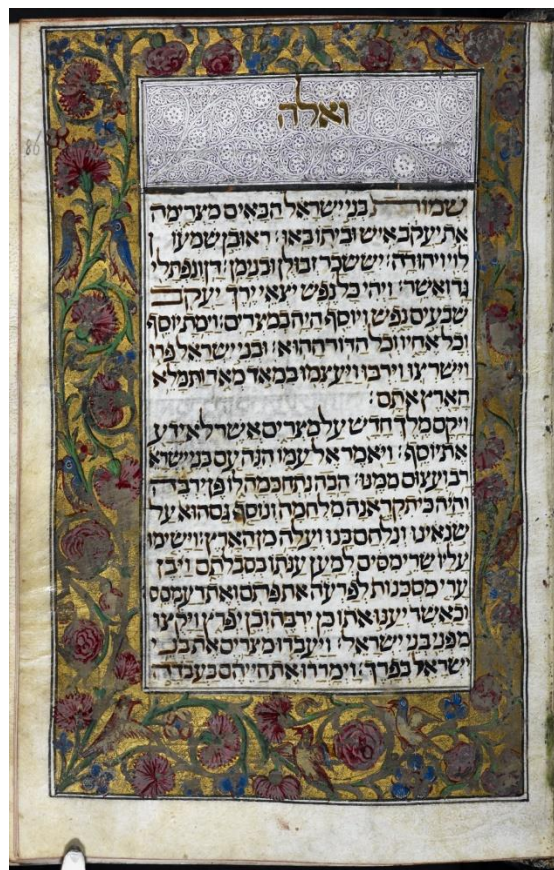 ואלה
שמות בני ישראל הבאים מצרימה
את יעקב איש וביתו באו׃ ראובן שמעון
לוי ויהודה׃ יששכר זבולן ובנימן׃ דן ונפתלי
גד ואשר׃ ויהי כל נפש יצאי ירך יעקב
שבעים נפש ויוסף היה במצרים׃ וימת יוסף
וכל אחיו וכל הדור ההוא׃ ובני ישראל פרו
וישרצו וירבו ויעצמו במאד מאד ותמלא
הארץ אתם׃
ויקם מלך חדש על מצרים אשר לא ידע
את יוסף׃ ויאמר אל עמו הנה עם בני ישרא
רב ועצום ממנו׃ הבה נתחכמה לו פן ירבה
והיה כי תקראנה מלחמה ונוסף גם הוא על
שנאינו ונלחם בנו ועלה מן הארץ׃ וישימו
עליו שרי מסים למען ענתו בסבלתם ויבן
ערי מסכנות לפרעה את פתם ואת רעמסס
וכאשר יענו אתו כן ירבה וכן יפרץ ויקצו
מפני בני ישראל׃ ויעבדו מצרים את בני
ישראל בפרך׃ וימררו את חייהם בעבדה